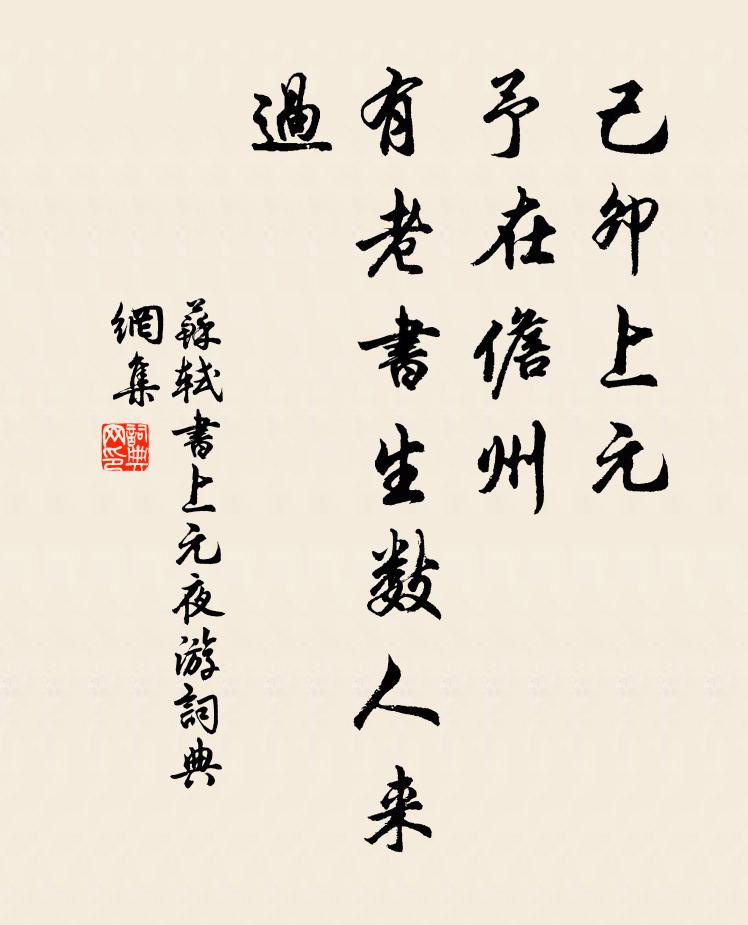 己卯上元
予在儋州
有老書生數人来
過
蘇軾書上元夜游詞典
網集
詞典网印